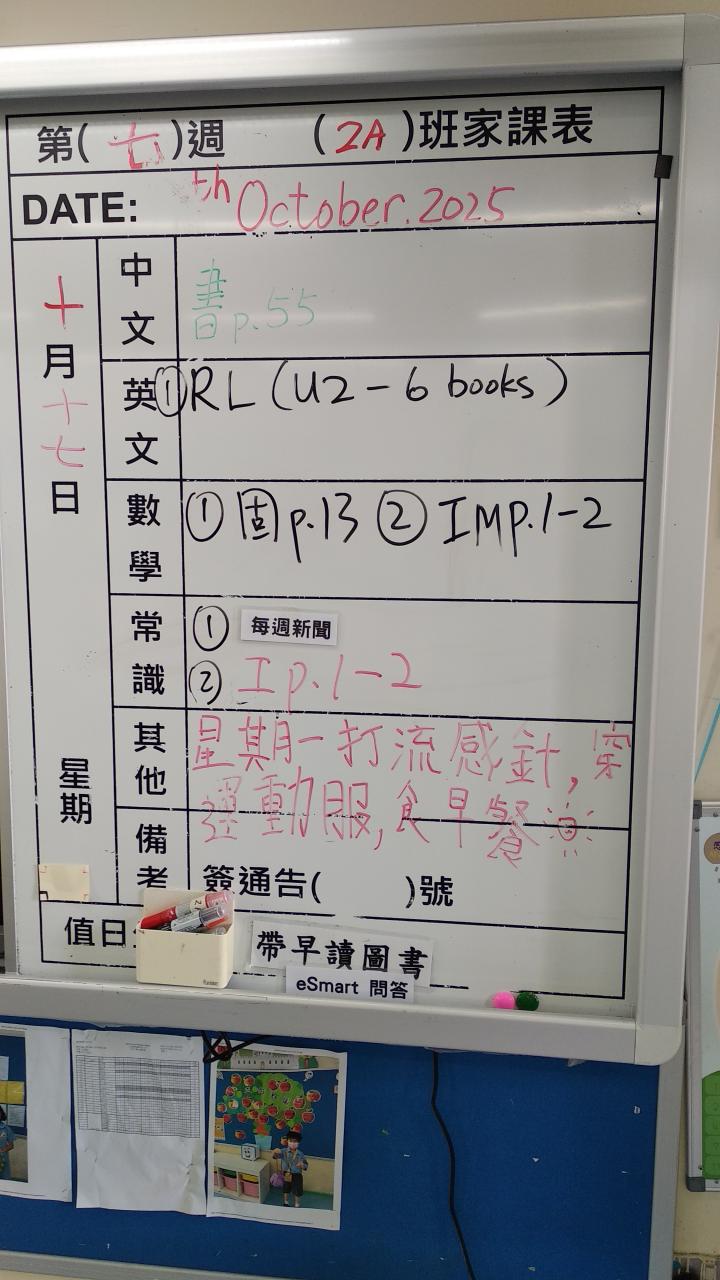 第(七)週 (2A)班家課表
DATE: th October.2025
十月十七日
星期
中文
書p.55
英文
①RL(U2-6 books)
數學
①固p.13 ②IMp.1-2
常識
① 每週新聞
② Ip.1-2
其他
星期一打流感針,穿
運動服,食早餐
備考
簽通告( )號
值日
帶早讀圖書
eSmart 問答